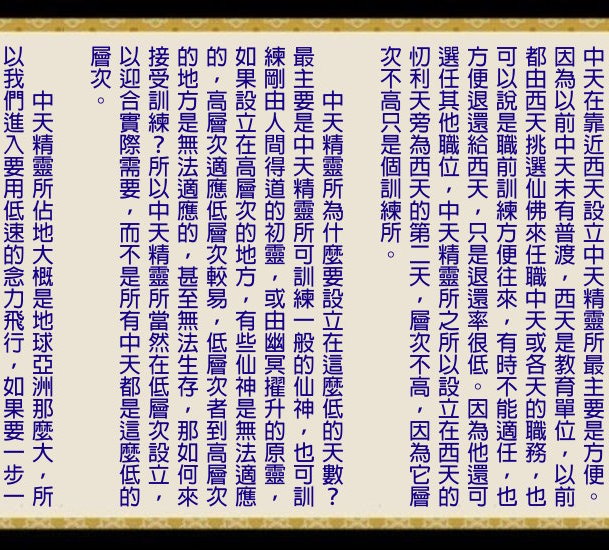 中天在靠近西天設立中天精靈所最主要是方便。
因為以前中天未有普渡，西天是教育單位，以前
都由西天挑選仙佛來任職中天或各天的職務，也
可以說是職前訓練方便往來，有時不能適任，也
方便退還給西天，只是退還率很低。因為他還可
選任其他職位，中天精靈所之所以設立在西天的
忉利天旁為西天的第二天，層次不高，因為它層
次不高只是個訓練所。
中天精靈所為什麼要設立在這麼低的天數？
最主要是中天精靈所可訓練一般的仙神，也可訓
練剛由人間得道的初靈，或由幽冥擢升的原靈，
如果設立在高層次的地方，有些仙神是無法適應
的，高層次適應低層次較易，低層次者到高層次
的地方是無法適應的，甚至無法生存，那如何來
接受訓練？所以中天精靈所當然在低層次設立，
以迎合實際需要，而不是所有中天都是這麼低的
層次。
中天精靈所佔地大概是地球亞洲那麼大，所
以我們進入要用低速的念力飛行，如果要一步一